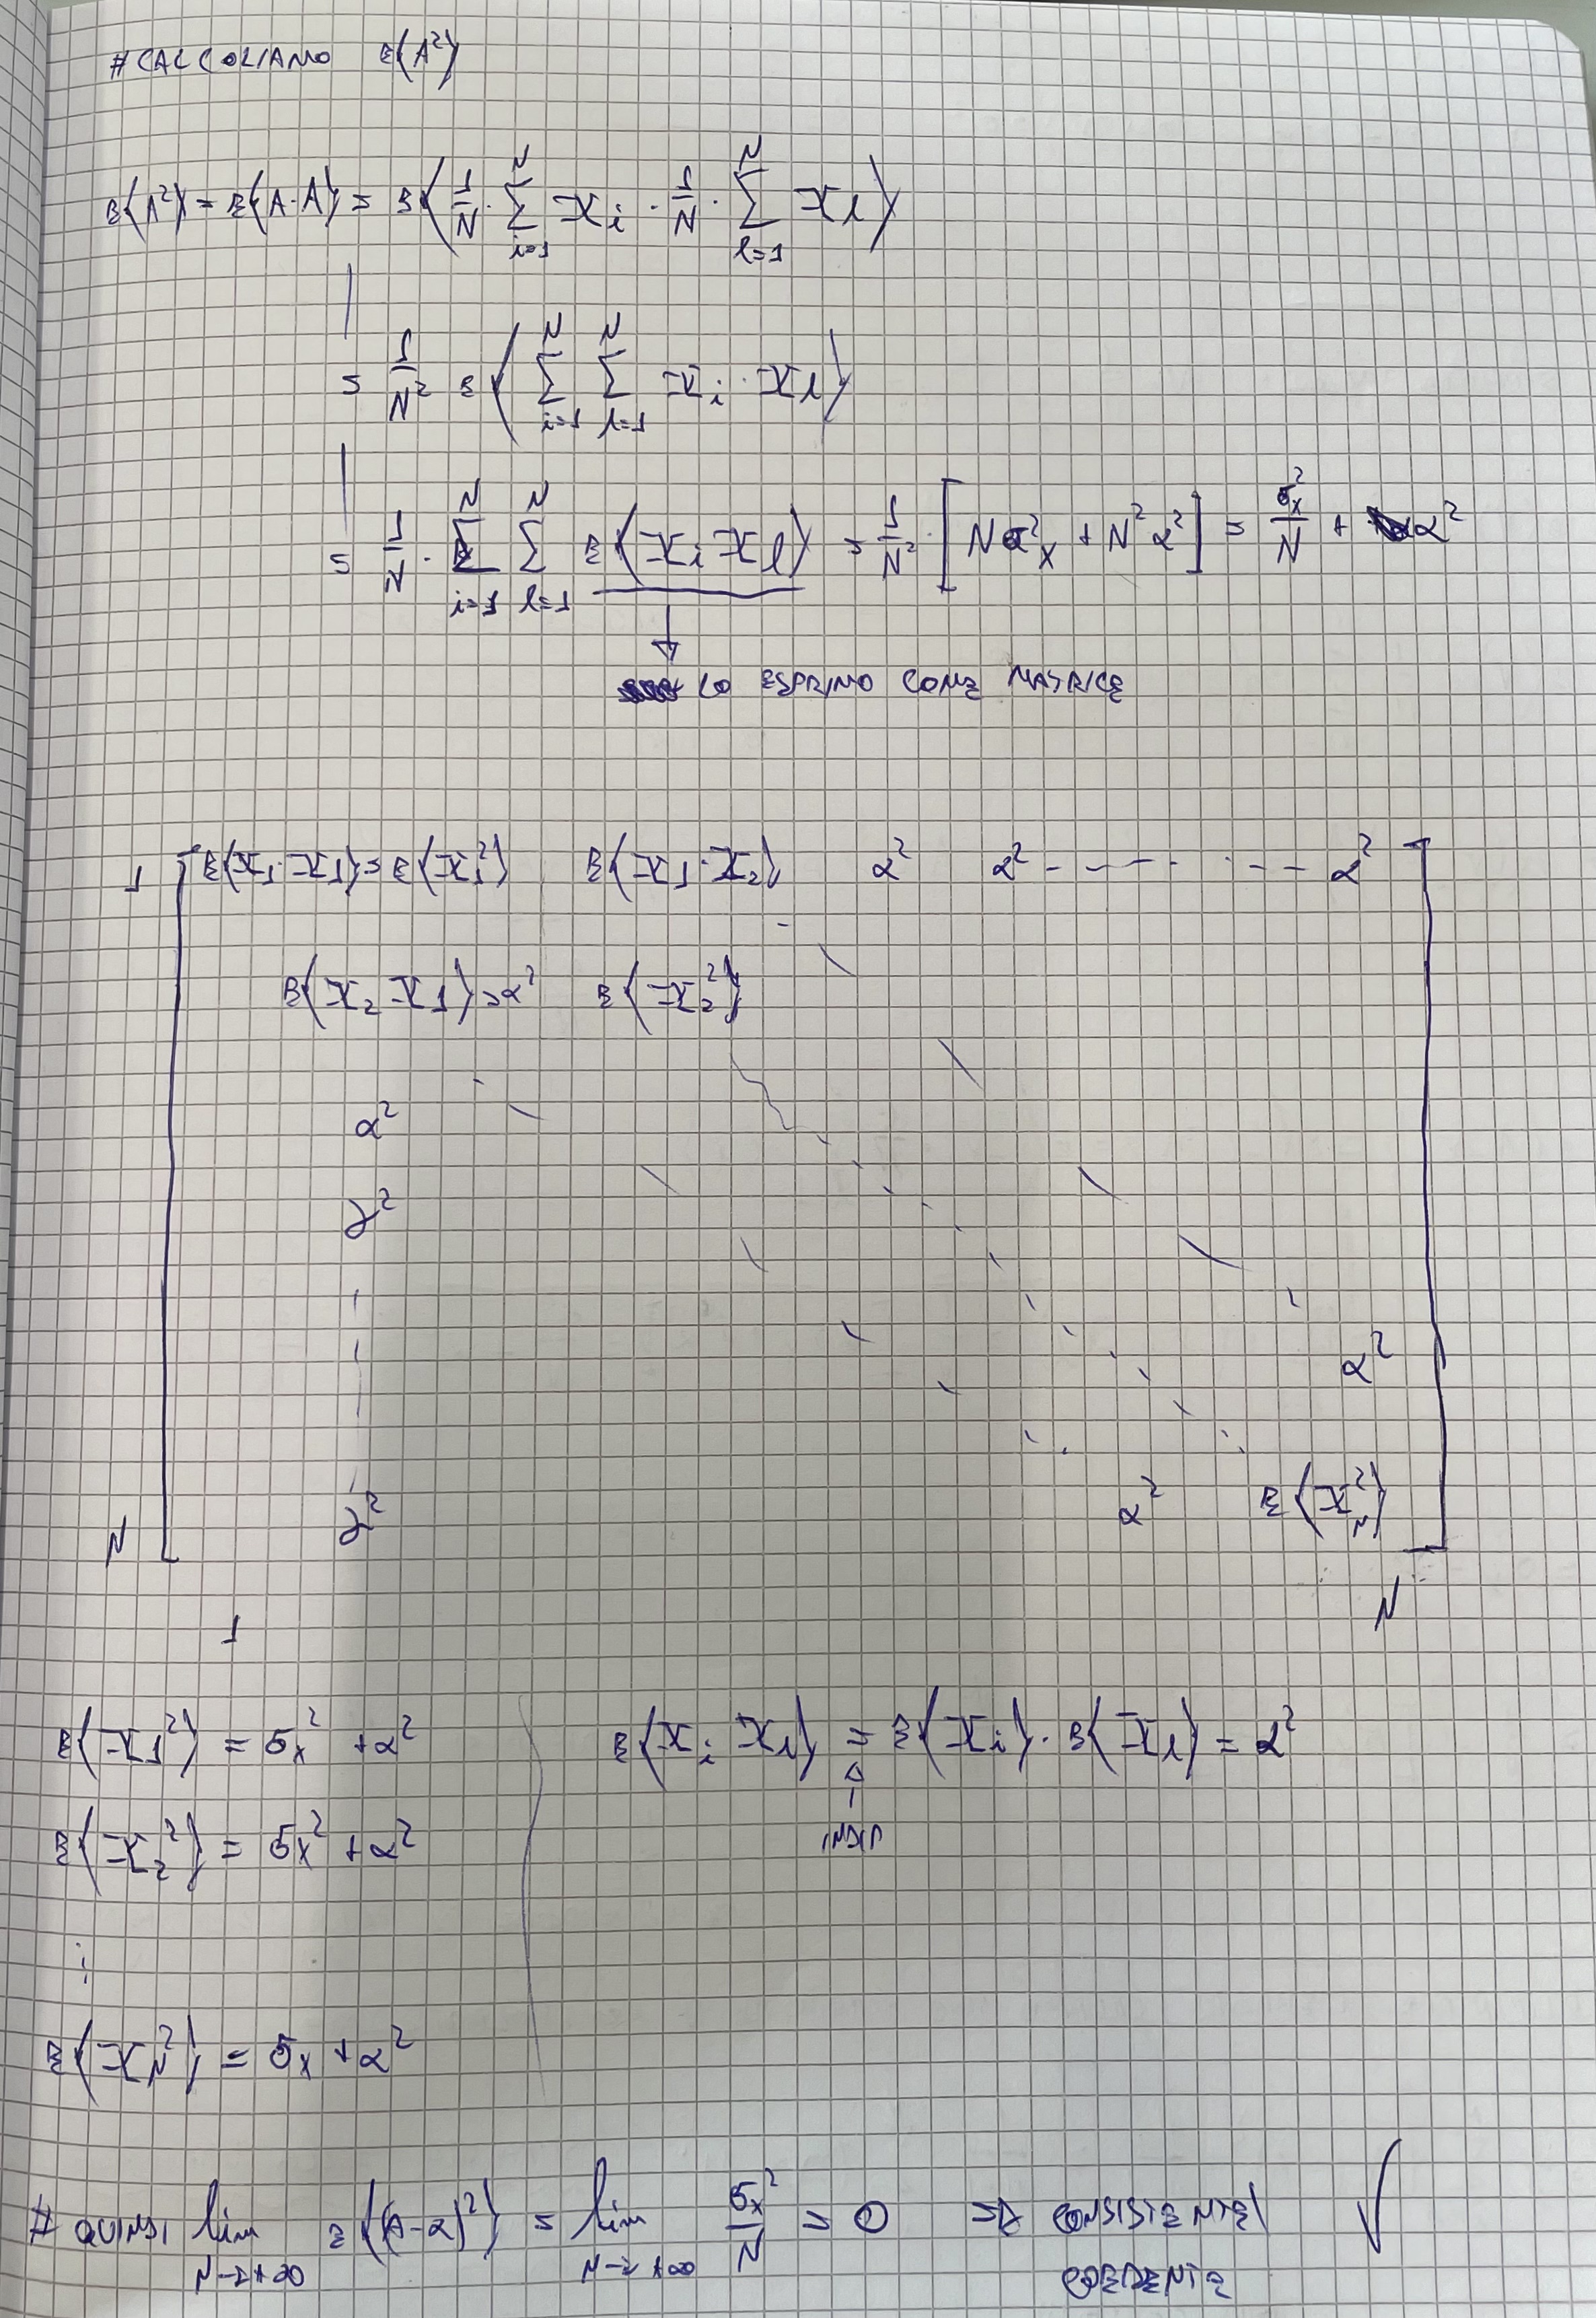 # CALCOLIAMO E(A²)
E(A²) = E(A·A) = E(1/N · Σ_{i=1}^{N} X_i · 1/N · Σ_{l=1}^{N} X_l)
= 1/N² E(Σ_{i=1}^{N} Σ_{l=1}^{N} X_i · X_l)
= 1/N · Σ_{i=1}^{N} Σ_{l=1}^{N} E(X_i X_l) = 1/N² · [Nσ²_x + N² α²] = σ_x²/N + α²
LO ESPRIMO COME MATRICE
1 E(X_1 · X_1) = E(X_1²) E(X_1 · X_2) α² α² - - - - · · - - - α²
E(X_2 X_1) = α² E(X_2²)
α²
α²
α²
N α² α² E(X_N²)
N
1
E(X_1²) = σ_x² + α² E(X_i X_l) = E(X_i) · E(X_l) = α²
INDIP
E(X_2²) = σ_x² + α²
⋮
E(X_N²) = σ_x + α²
# QUINDI lim_{N→+∞} E((A-α)²) = lim_{N→+∞} σ_x²/N = 0 ⇒ CONSISTENTE/ √
COERENTE